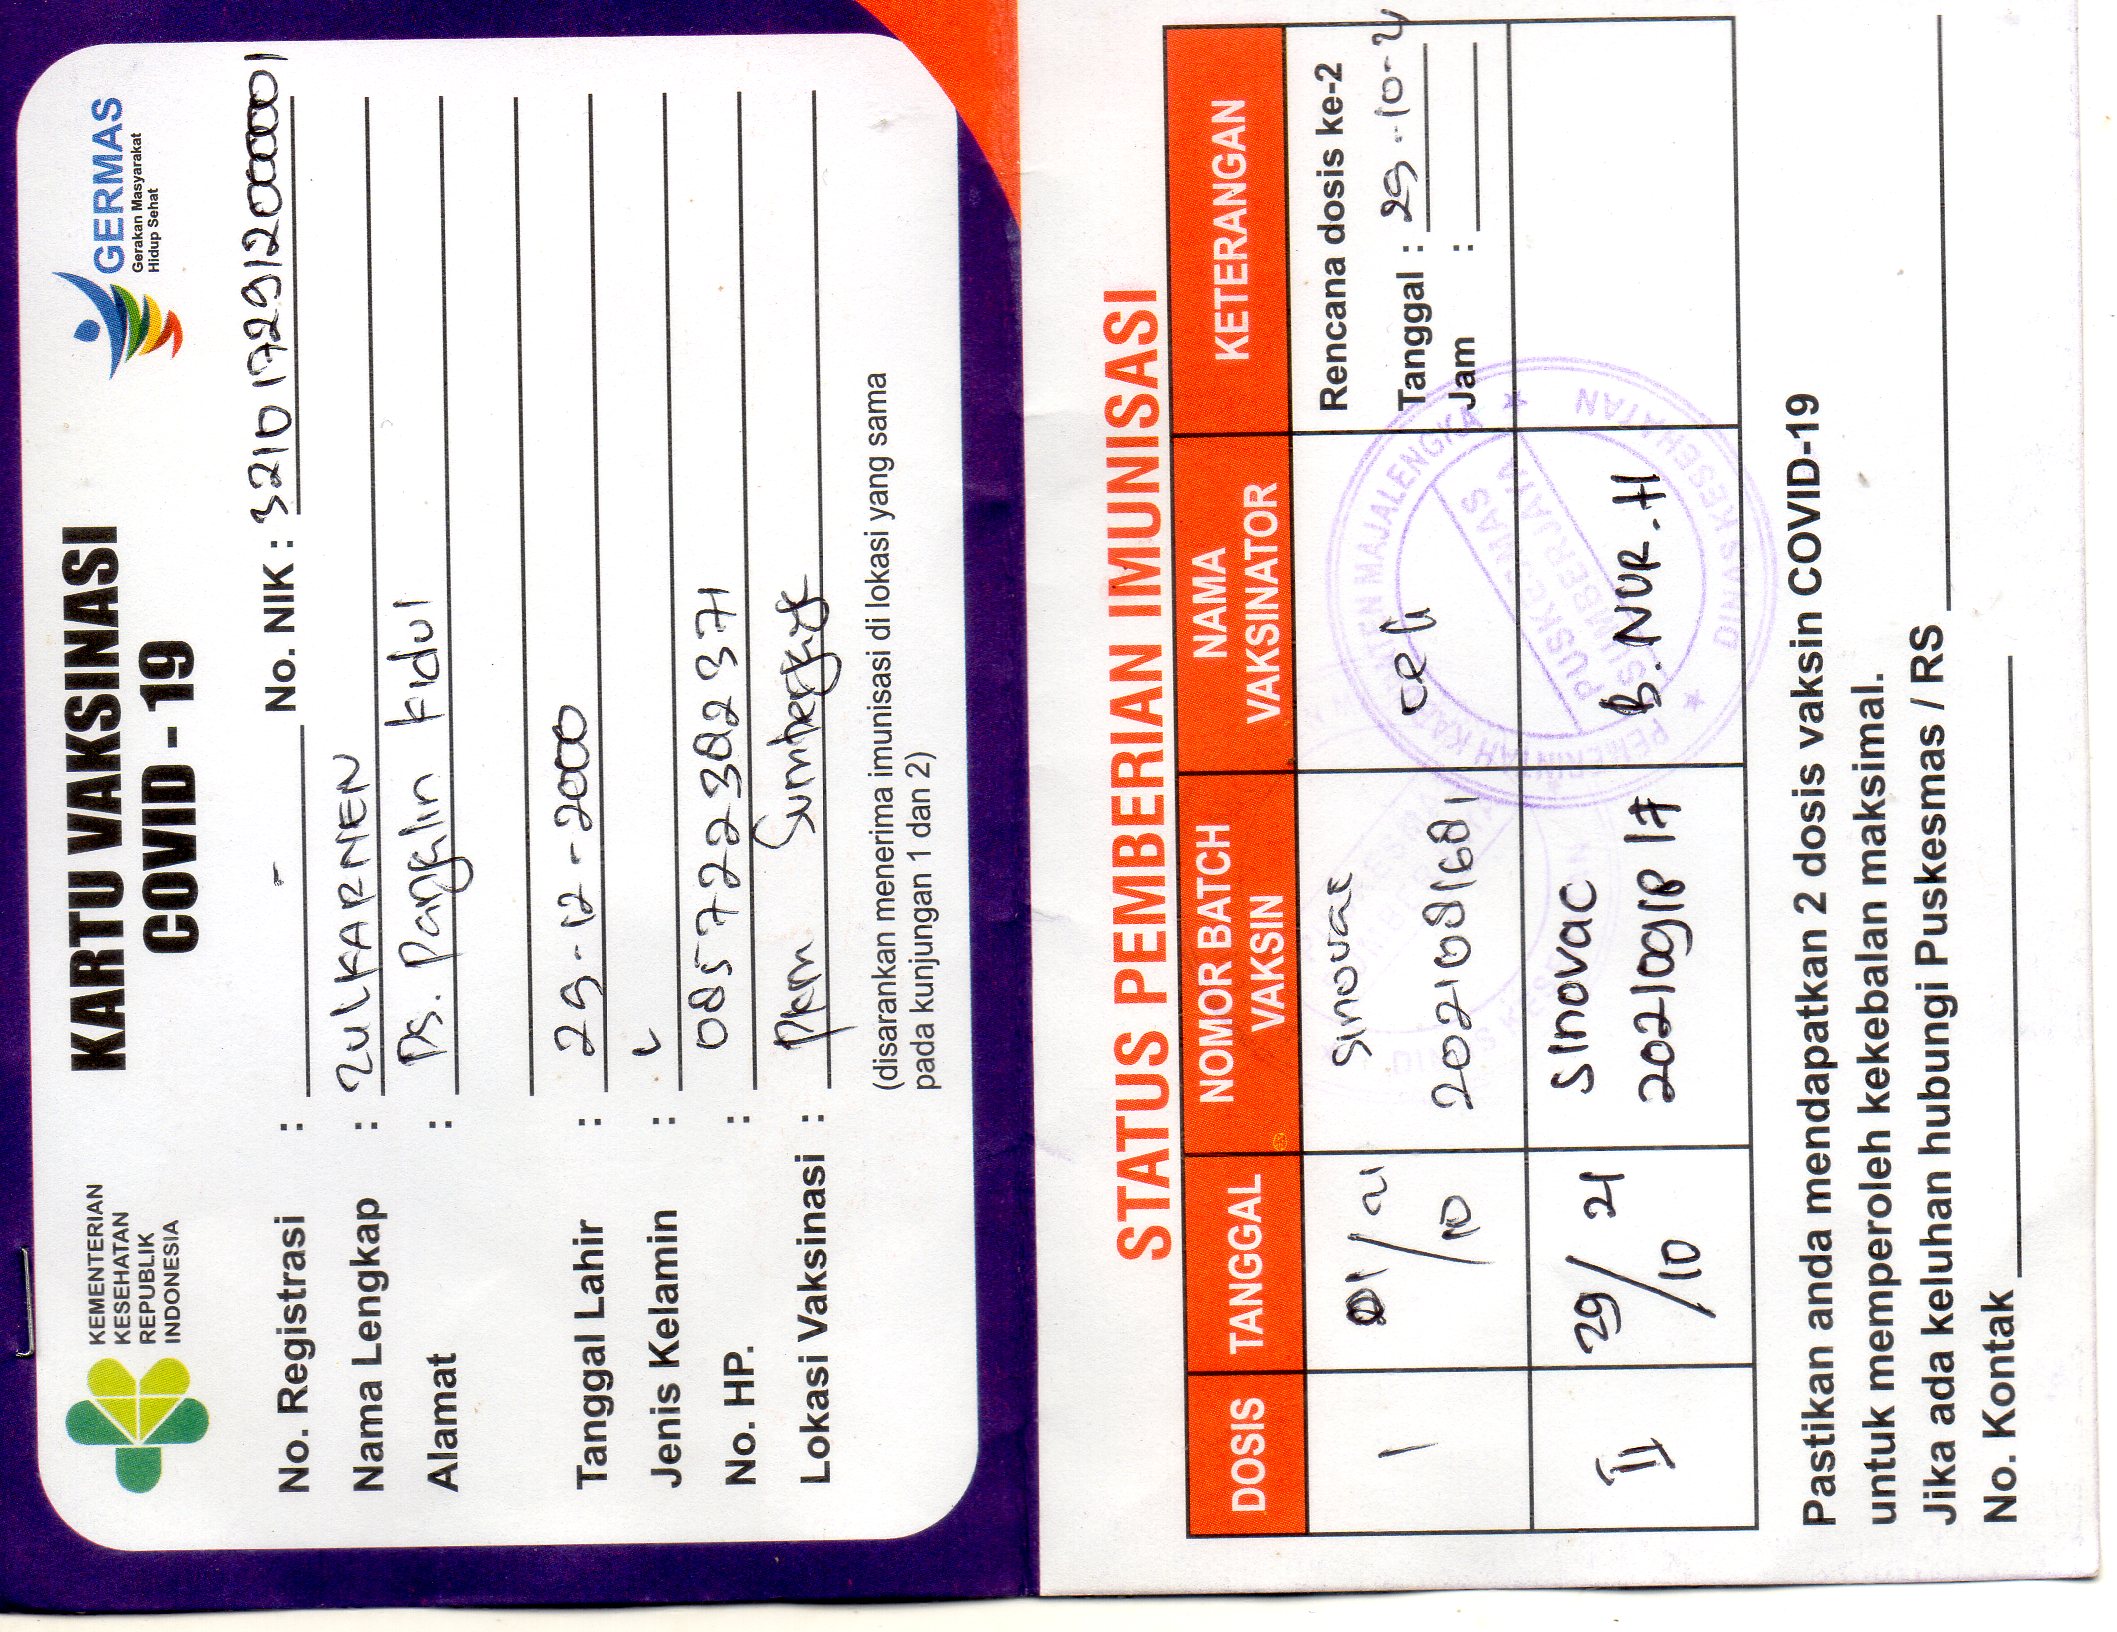 KEMENTERIAN
KESEHATAN
REPUBLIK
INDONESIA
KARTU VAKSINASI
COVID - 19
GERMAS
Gerakan Masyarakat
Hidup Sehat
No. Registrasi : - No. NIK : 3210172912000001
Nama Lengkap : ZULKARNEN
Alamat : Ds. Panglin Kidul
Tanggal Lahir : 29-12-2000
Jenis Kelamin : L
No. HP. : 085722382371
Lokasi Vaksinasi : Pkm
(disarankan menerima imunisasi di lokasi yang sama
pada kunjungan 1 dan 2)
STATUS PEMBERIAN IMUNISASI
DOSIS TANGGAL NOMOR BATCH VAKSIN NAMA VAKSINATOR KETERANGAN
I 01/10 21 Sinovac 2021081681 Rencana dosis ke-2
Tanggal : 29-10-2
Jam :
II 29/10 21 SINOVAC 2021091817 B. NUR. H
PEMERINTAH KABUPATEN MAJALENGKA
PUSKESMAS
SUMBERJAYA
DINAS KESEHATAN
Pastikan anda mendapatkan 2 dosis vaksin COVID-19
untuk memperoleh kekebalan maksimal.
Jika ada keluhan hubungi Puskesmas / RS
No. Kontak